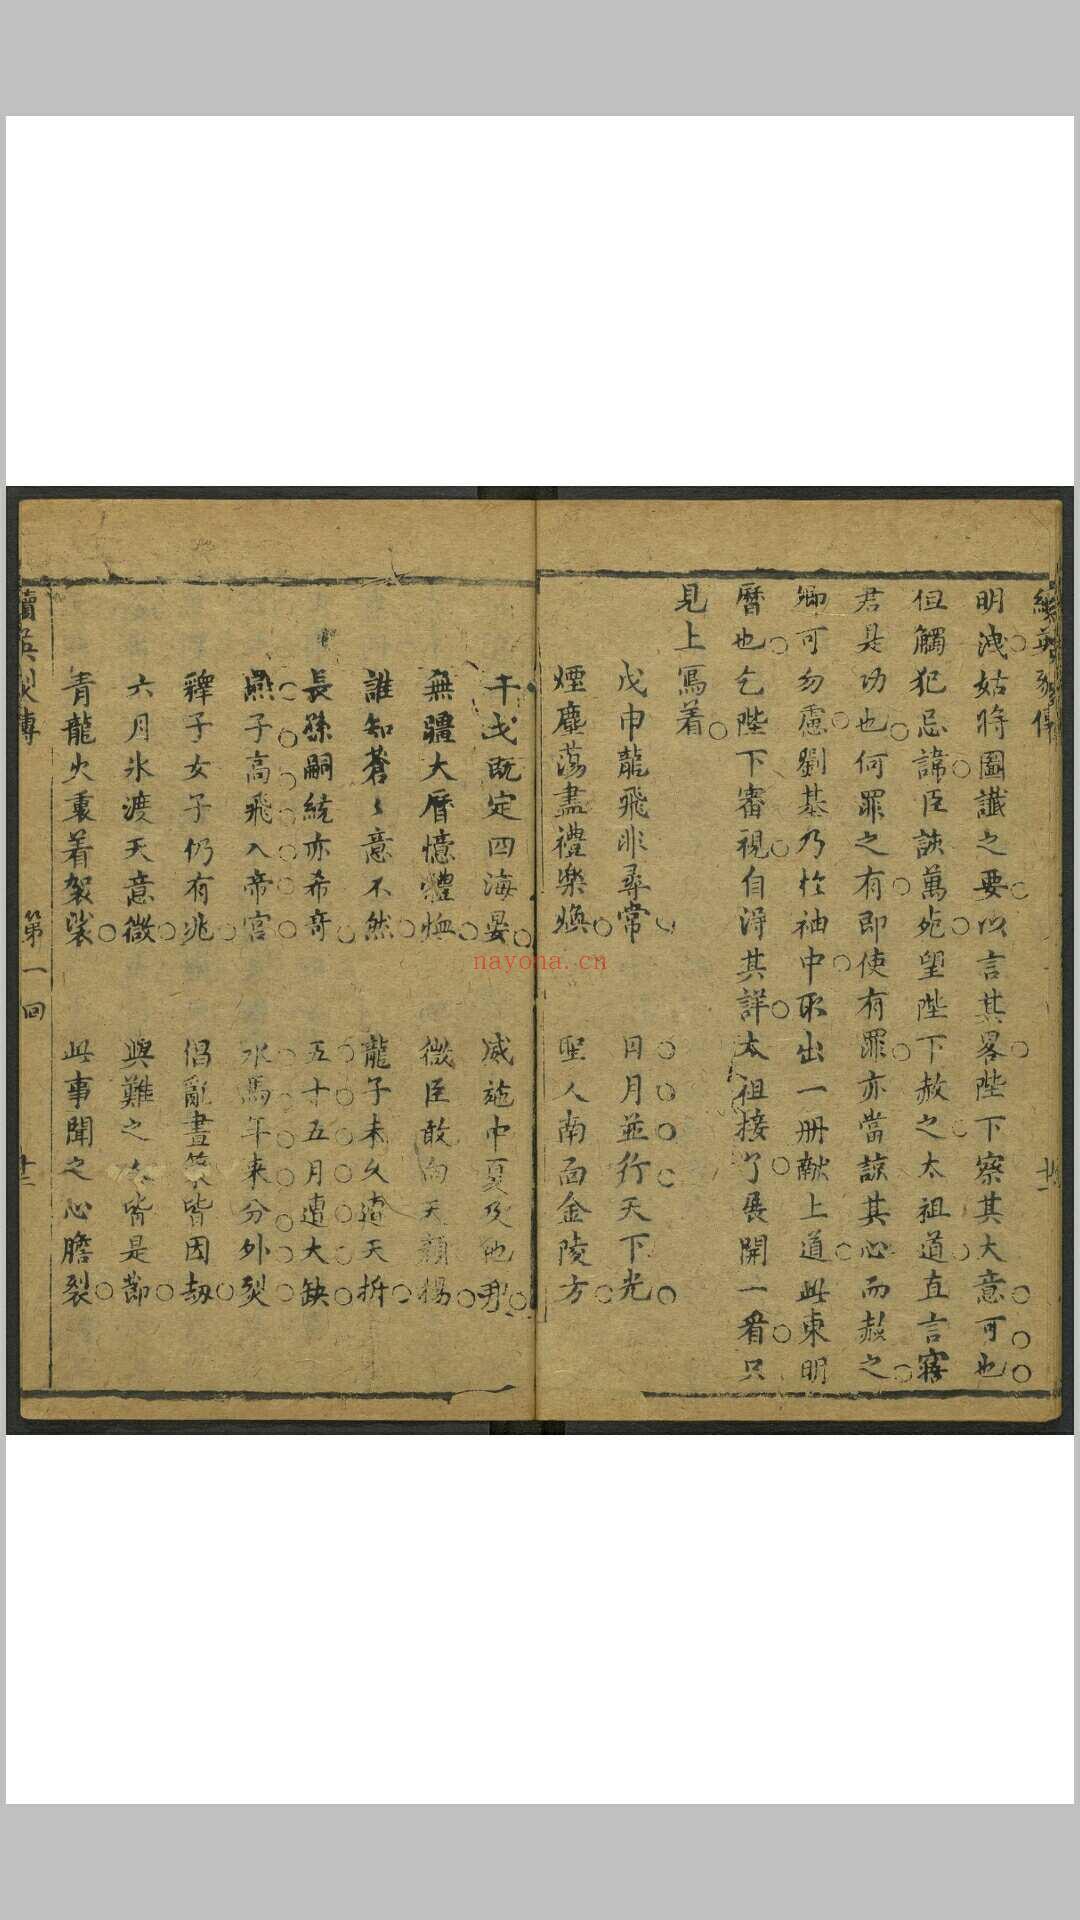 續英烈傳
明洩姑將圖讖之要以言其畧陛下察其大意可也
但觸犯忌諱臣該萬死望陛下赦之太祖道直言寤
君是功也何罪之有即使有罪亦當諒其心而赦之
卿可勿慮劉基乃於袖中取出一册献上道此東明
曆也乞陛下審視自淂其詳太祖接了展開一看只
見上寫着
戊申龍飛非尋常 日月並行天下光
煙塵蕩盡禮樂煥 聖人南面金陵方
干戈既定四海晏 威施中夏及他邦
無疆大曆憶體恤 微臣敢向天顏揚
誰知蒼〻意不然 龍子未久遭天折
長孫嗣統亦希竒 五十五月遭大缺
燕子高飛入帝宫 水馬年来分外烈
釋子女子仍有兆 倡亂畫策皆因刼
六月氷渡天意微 與難之人皆是節
青龍火裏着袈裟 此事聞之心膽裂
續英烈傳 第一回 十二
nayona.cn